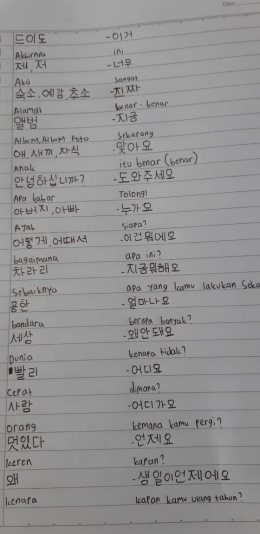 드이도 -이거
Akhirnya ini
제, 저 -너무
Aku sangat
숙소, 에감, 추소 -진짜
Alamat benar-benar
앨범 -지금
Album, Album Foto Sekarang
애, 새끼, 자식 -맞아요
Anak itu benar (benar)
안녕하십니까? -도와주세요
Apa kabar Tolong!
아버지, 아빠 -누가요
Ayah siapa?
어떻게, 어때서 -이건뭐에요
bagaimana apa ini?
차라리 -지금뭐해요
Sebaiknya apa yang kamu lakukan Seka
공한 -얼마나요
bandara berapa banyak?
세상 -왜안돼요
Dunia kenapa tidak?
빨리 -어디요
Cepat dimana?
사람 -어디가요
Orang kemana kamu pergi?
멋있다 -언제요
Keren kapan?
왜 -생일이언제에요
kenapa kapan kamu ulang tahun?